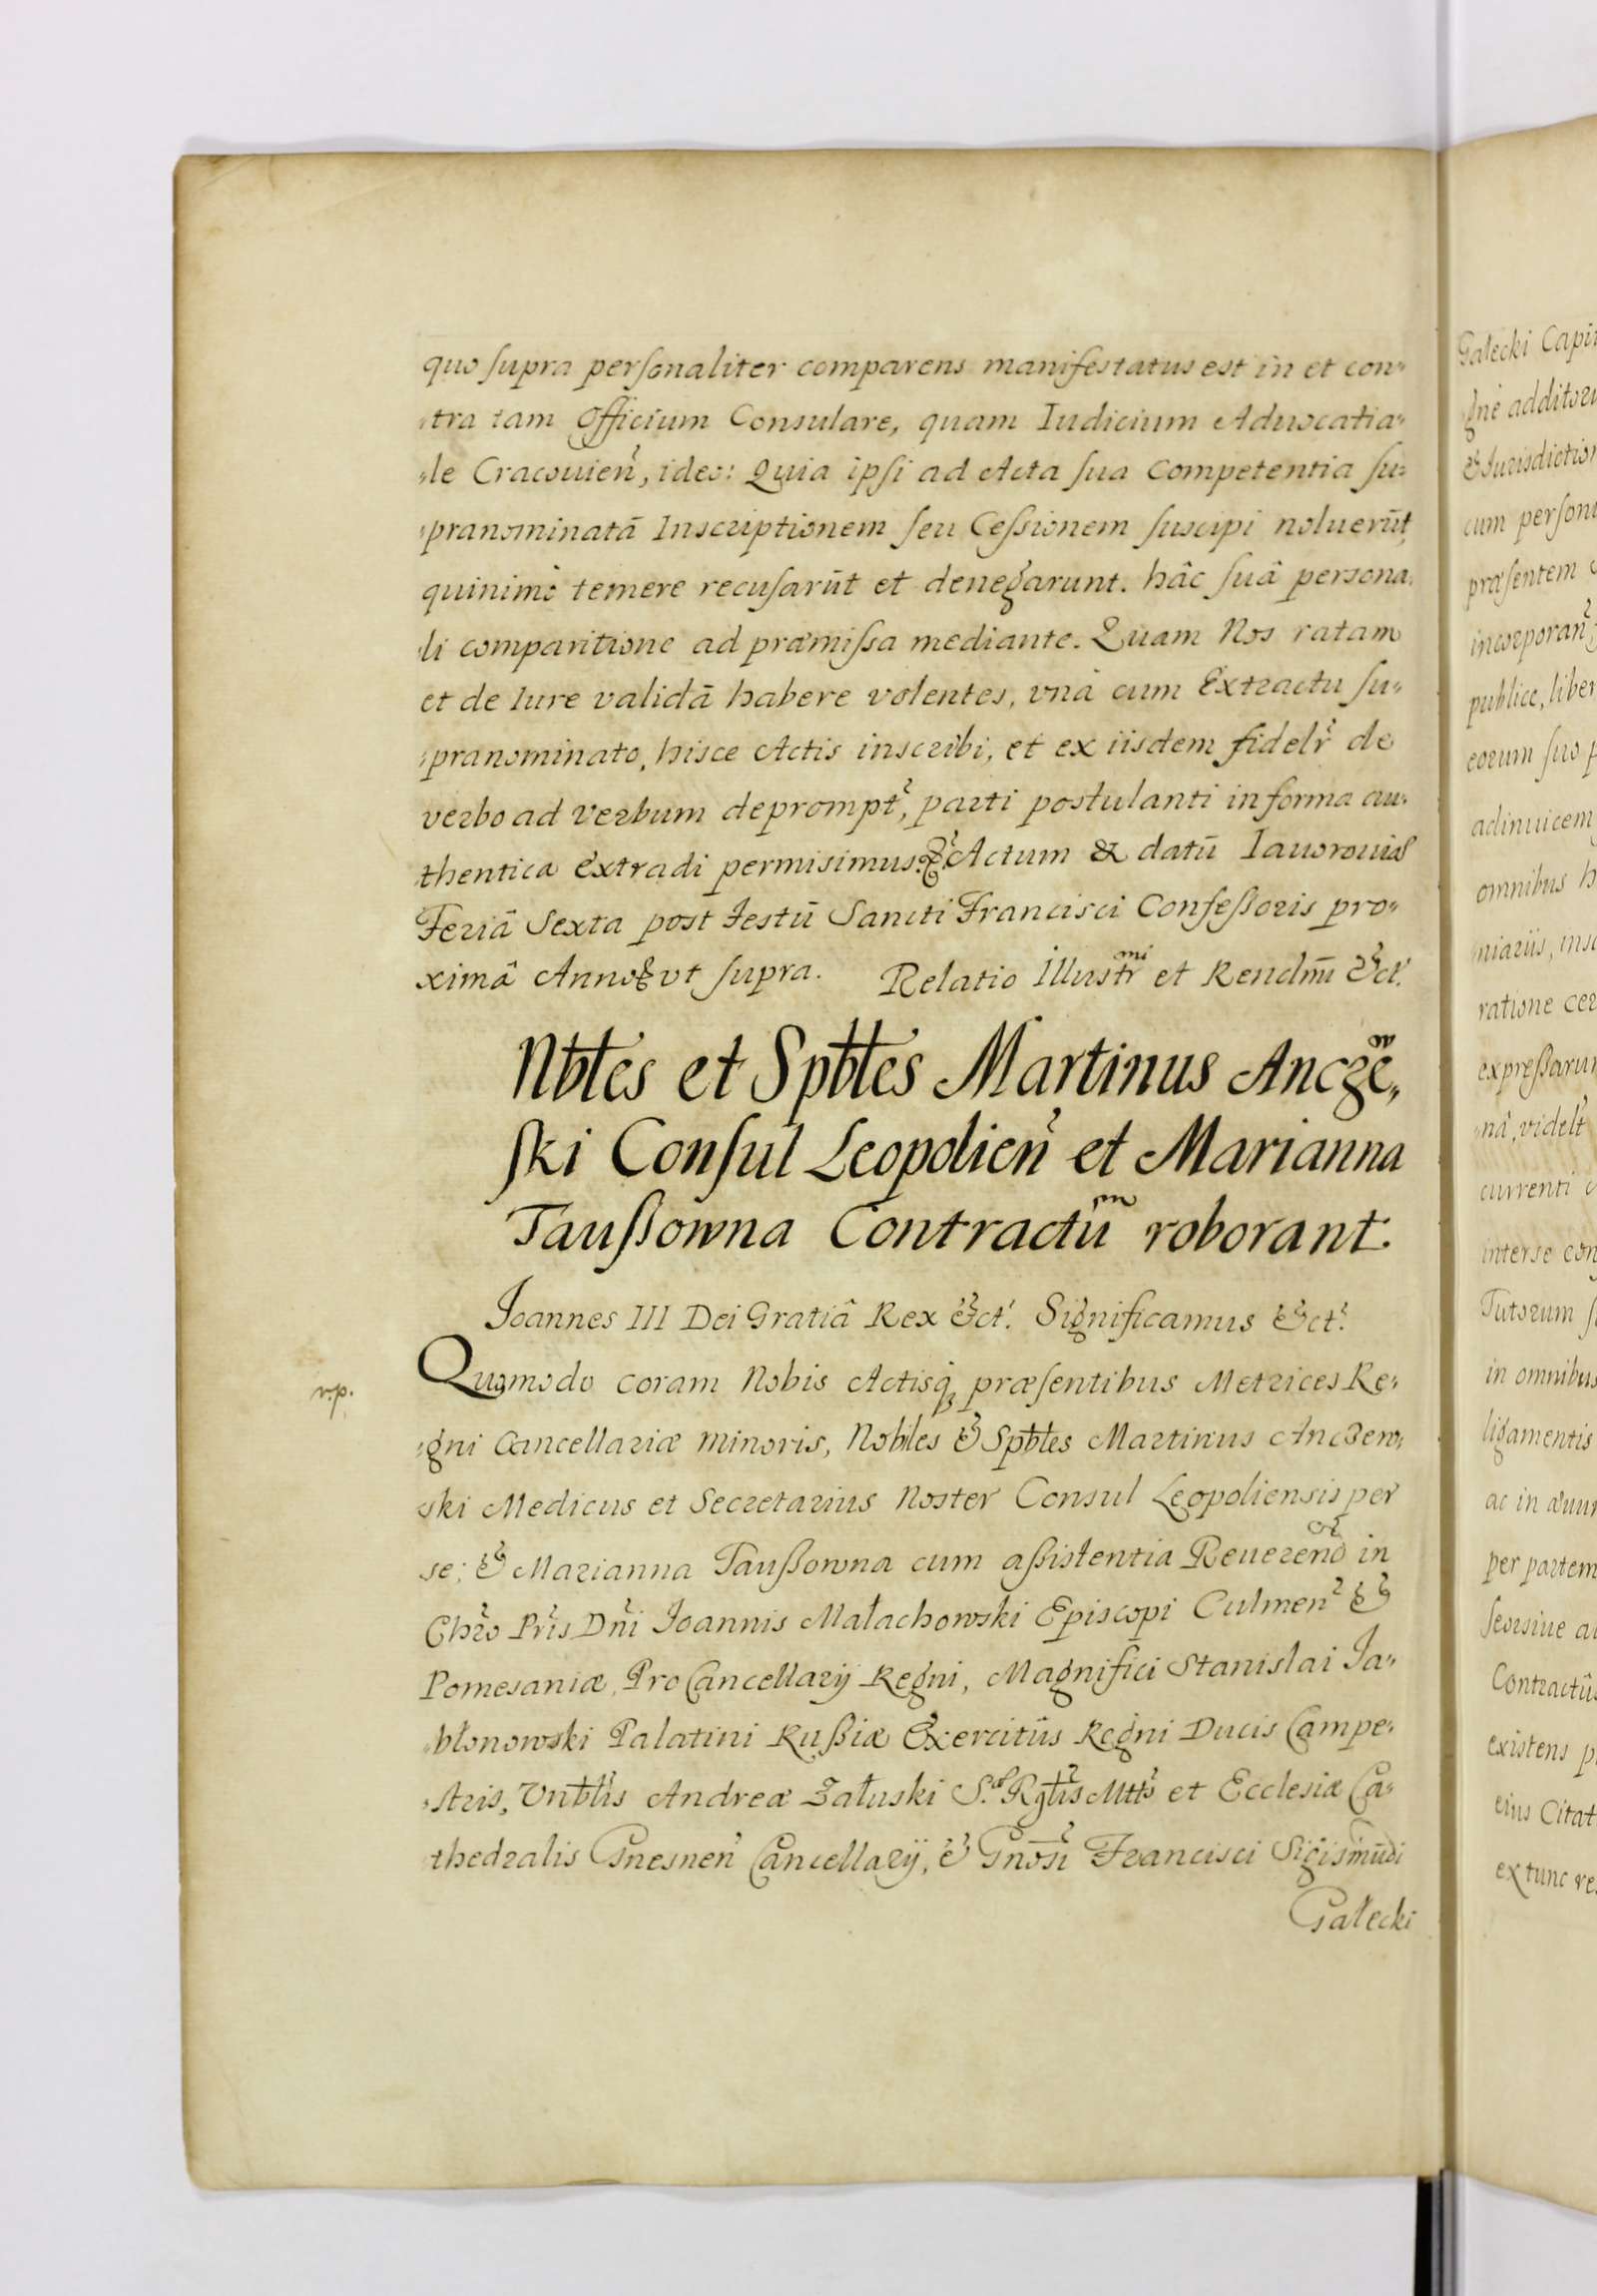 quo supra personaliter comparens manifestatus est in et con-
tra tam Officium Consulare, quam Iudicium Aduocatia-
le Cracouien, ideo: Quia ipsi ad Acta sua Competentia su-
pranominatā Inscriptionem seu Cessionem suscipi noluerūt,
quinimò temere recusarūt et denegarunt. hâc suâ persona-
li comparitione ad præmissa mediante. Quam Nos ratam
et de Iure validā habere volentes, vnà cum Extractu su-
pranominato, hisce Actis inscribi, et ex iisdem fidelr de
verbo ad verbum deprompt, parti postulanti in forma au-
thentica extradi permisimus. Actum & datū Iauorouiæ
Feriâ Sexta post Festū Sancti Francisci Confessoris pro-
ximâ Anno vt supra. Relatio Illustrmi et Rendm̄i &ct.
Nbtes et Spbtes Martinus Ancze-
ski Consul Leopolien et Marianna
Taussowna Contractūm roborant.
Joannes III Dei Gratiâ Rex &ct. Significamus &ct.
n.p.
Quomodo coram Nobis Actisq, præsentibus Metrices Re-
gni Cancellariæ minoris, Nobiles & Spbtes Martinus Anczew-
ski Medicus et Secretarius Noster Consul Leopoliensis per
se; & Marianna Taussowna cum assistentia Reuerend in
Chro Pris Dni Joannis Małachowski Episcopi Culmen &
Pomesaniæ, ProCancellarij Regni, Magnifici Stanislai Ja-
błonowski Palatini Russiæ Exercitûs Regni Ducis Campe-
stris, Vnbtis Andreæ Załuski S. Rgtis Mttis et Ecclesiæ Ca-
thedralis Gnesnen Cancellarij, & Gnosi Francisci Sigismūdi
Gałecki
Gałecki Capi
gnè additor
& Jurisdiction
cum person
præsentem
incorporan
publice, liber
eorum suo p
adinuicem
omnibus h
niariis, insc
ratione cer
expressaru
nâ, videlt
currenti
inter se con
Tutorum s
in omnibus
ligamentis
ac in æuu
per partem
seorsiue a
Contractûs
existens p
eius Citat
ex tunc re